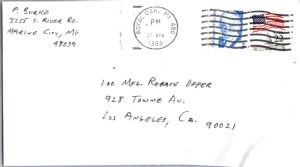 P. BURKE
8255 S. RIVER RD.
MARINE CITY, MI
48039
ROYAL OAK, MI 480
PM
APR
1988
22
100 MFG. REBATE OFFER
928 TOWNE AV.
LOS ANGELES, CA.
90021